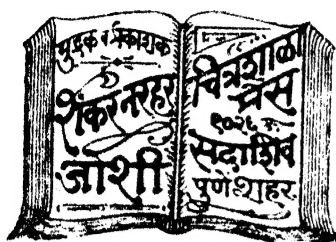 मुद्रक व प्रकाशक
शंकर नरहर
जोशी
चित्रशाळा
प्रेस
१०२६
सदाशिव
पुणे शहर.